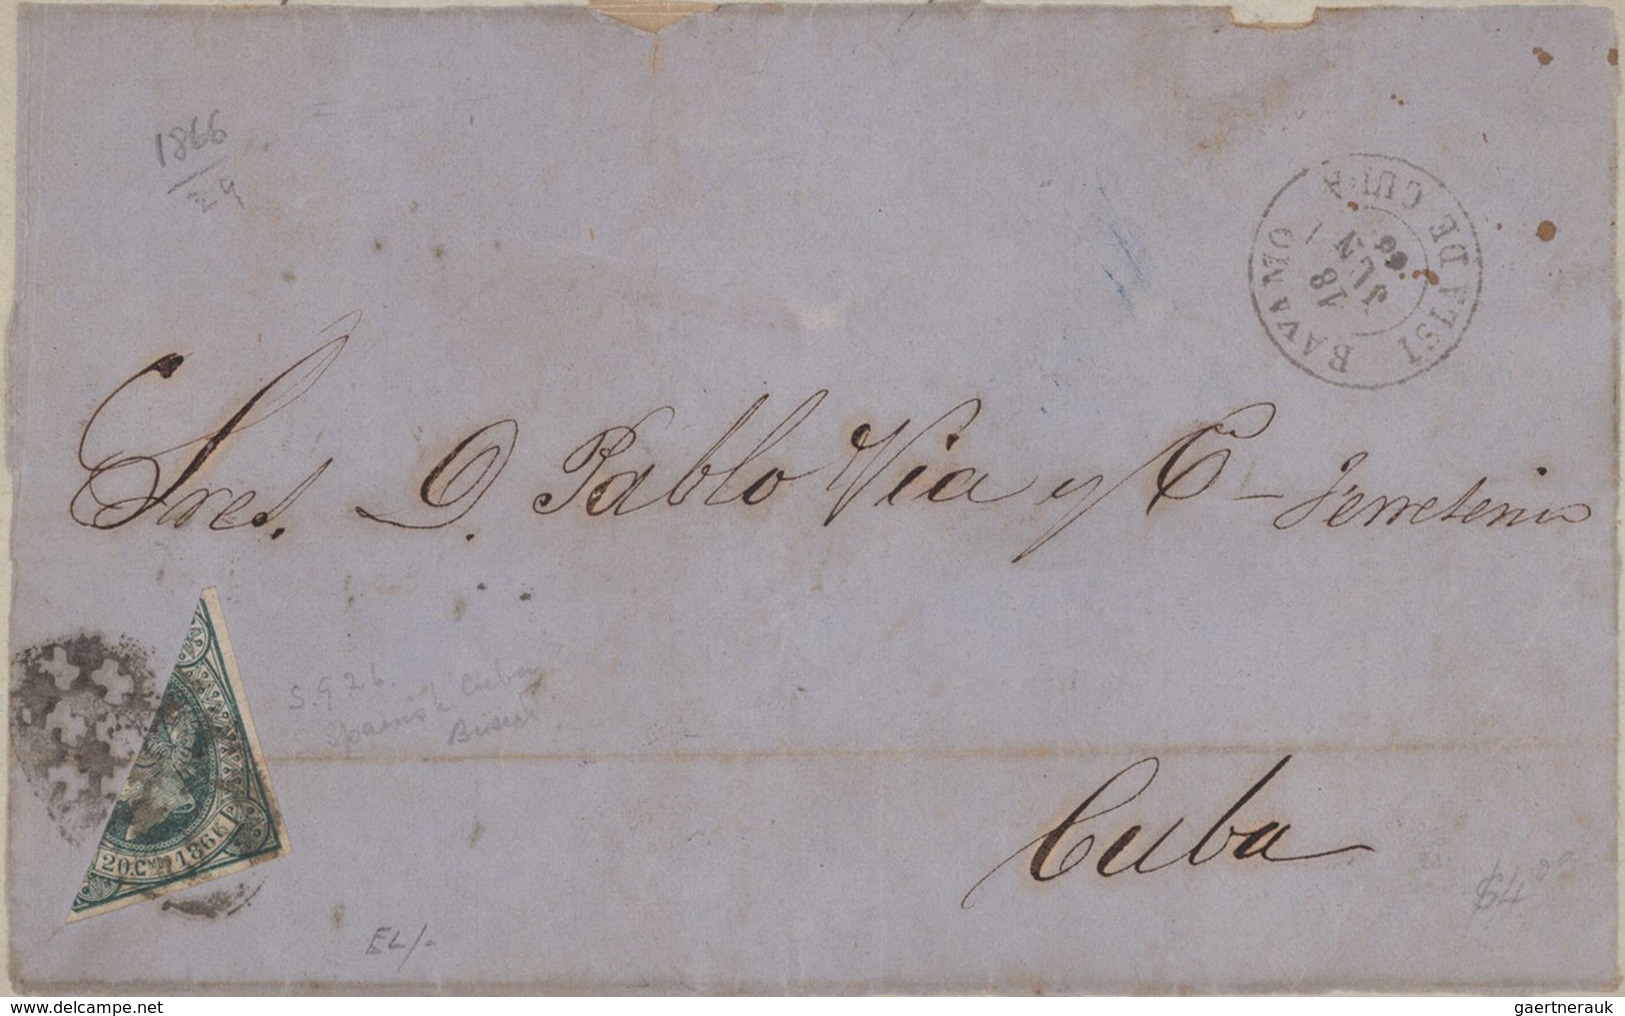 1866
29
BAYAMO
ISLA DE CUBA
18
JUN
66
Sres. D. Pablo Via y C - Ferreteria
S.G 26.
Spanish Cuba
Bisect
20. Cs 1866
Cuba
$4 00
EL/-
www.delcampe.net
gaertnerauk